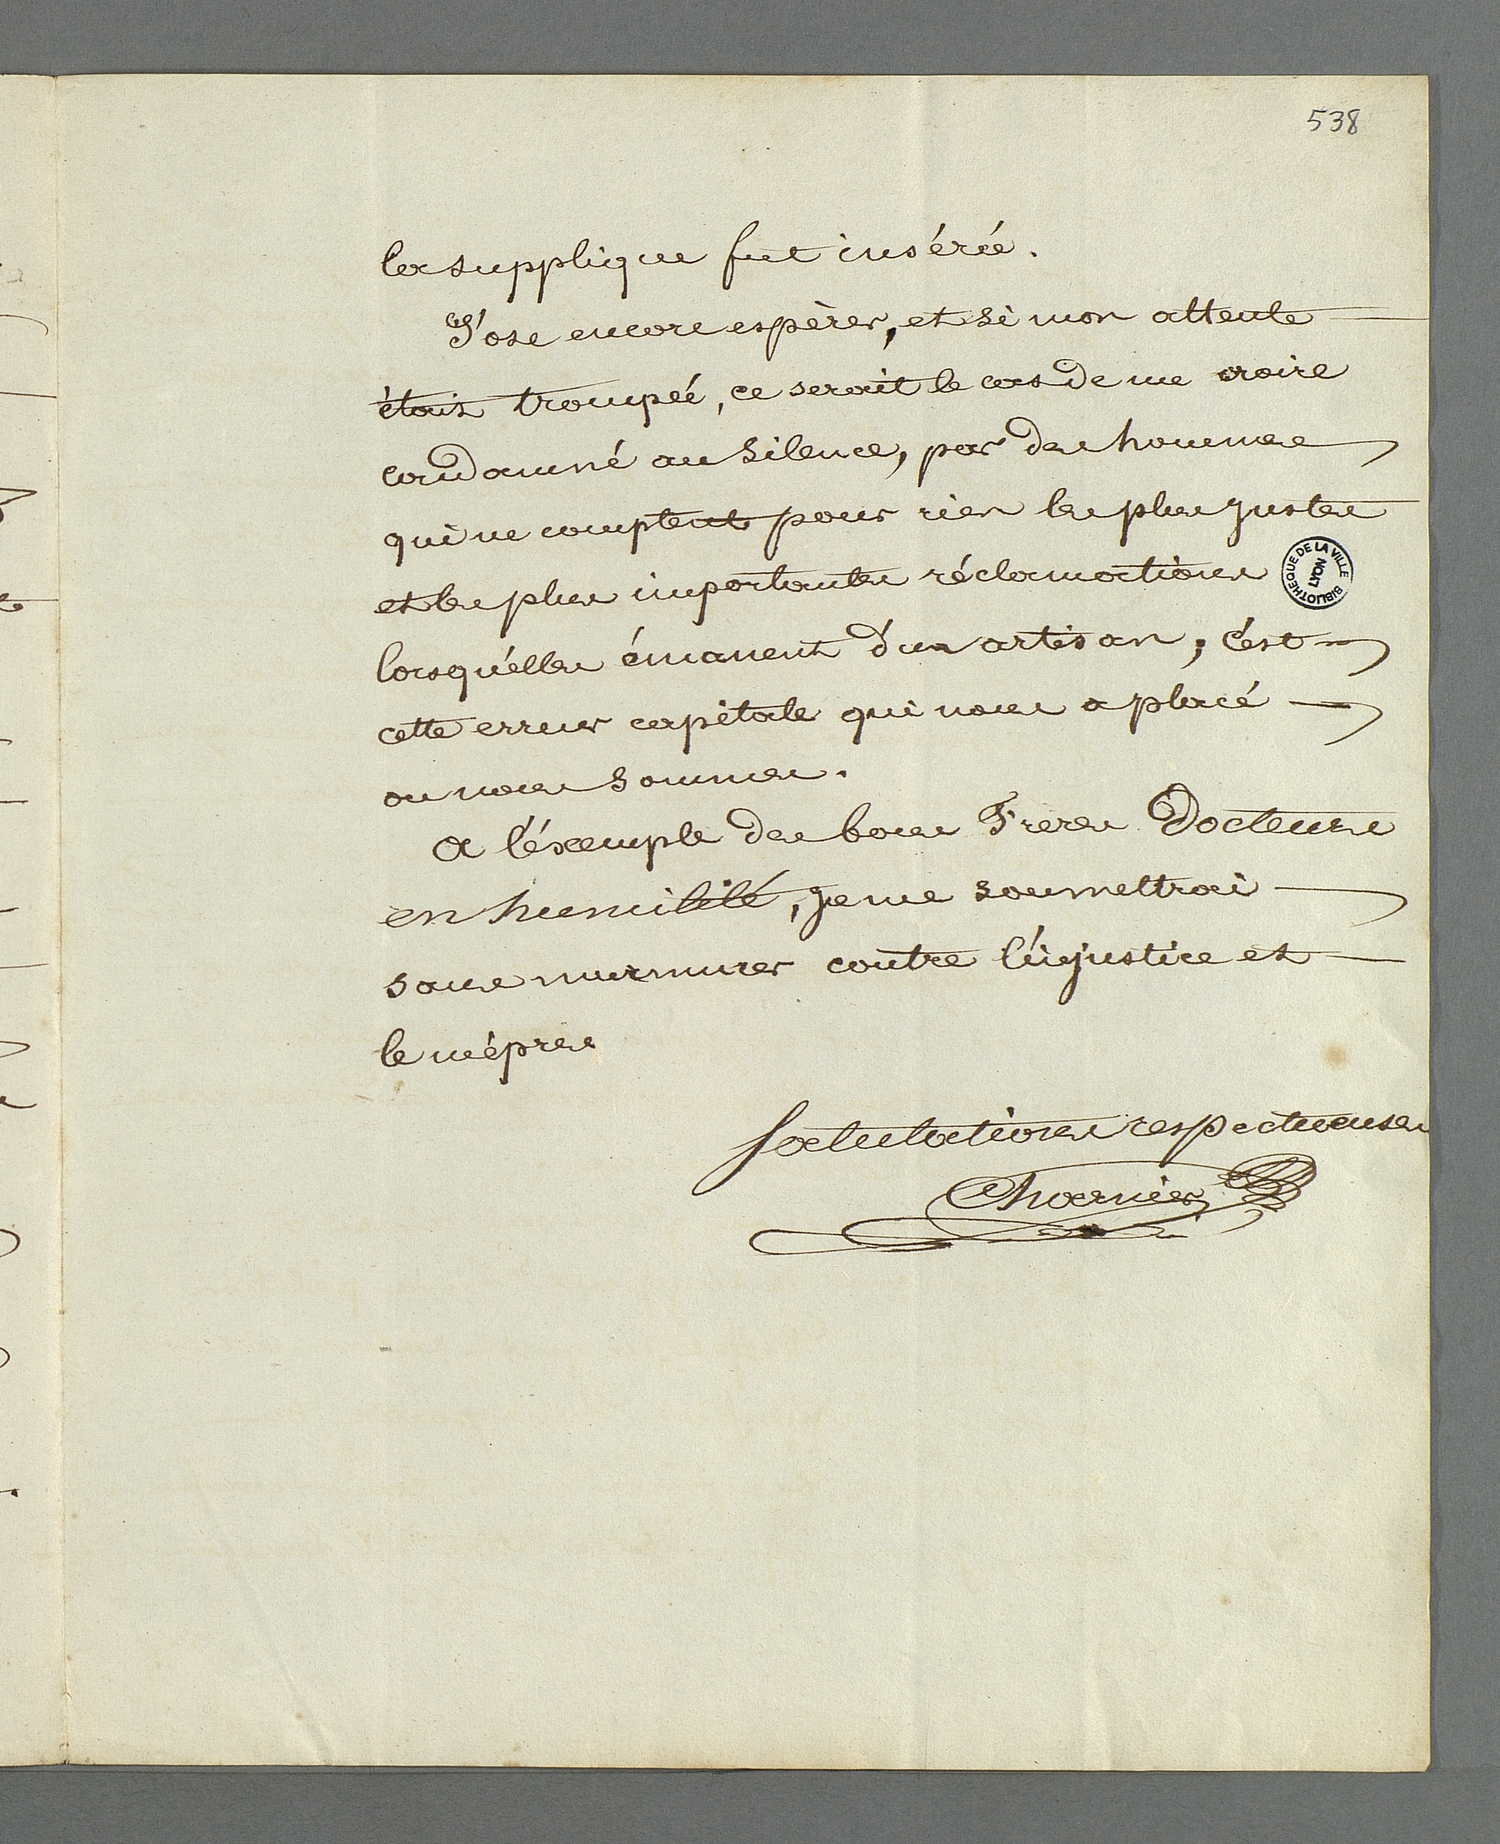 538
la supplique fut insérée.
J'ose encore espèrer, et si mon attente
étais trompéé, ce serait le cas de me croire
condamné au silence, par des hommes
qui ne comptent pour rien les plus justes
et les plus importantes réclamations
lorsqu'élles émanent d'un artisan, c'est
cette erreur capitale qui nous a placé
ou nous sommes.
A l'éxemple des bons Freres Docteurs
en humilité, je me soumettrai
sans murmurer contre l'injustice et
le mépris
Salutations respectueuses
Charnier
BIBLIOTHEQUE DE LA VILLE
LYON